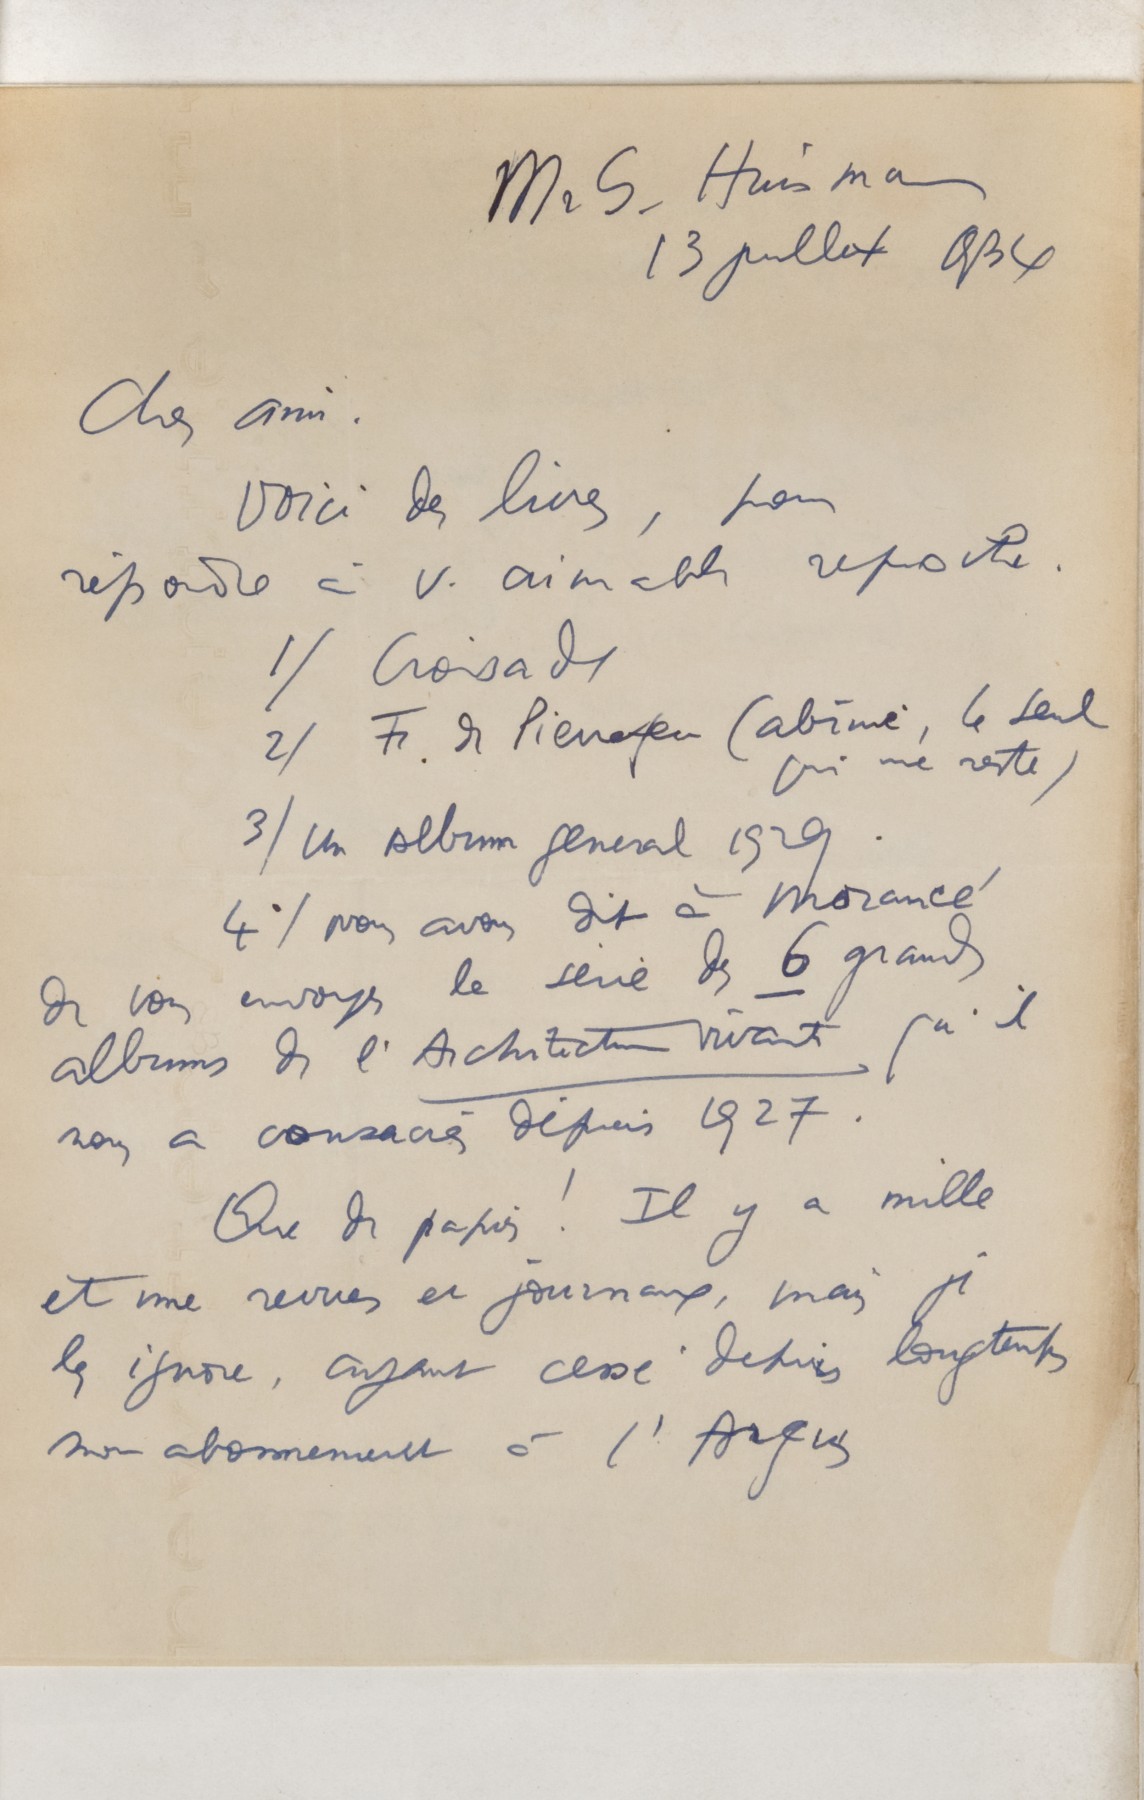 Mr G. Huisman
13 juillet 934
Cher ami.
Voici des livres, pour
répondre à v. aimable reproche.
1/ Croisade
2/ Fr. de Pierrefeu (abîmé, le seul
qui me reste)
3/ Un Album general 1929.
4°/ nous avons dit à Morancé
de vous envoyer la série des 6 grands
albums de l'Architecture vivante qu'il
nous a consacrés depuis 1927.
Que de papier! Il y a mille
et une revues et journaux, mais je
les ignore, ayant cessé depuis longtemps
mon abonnement à l'Argus